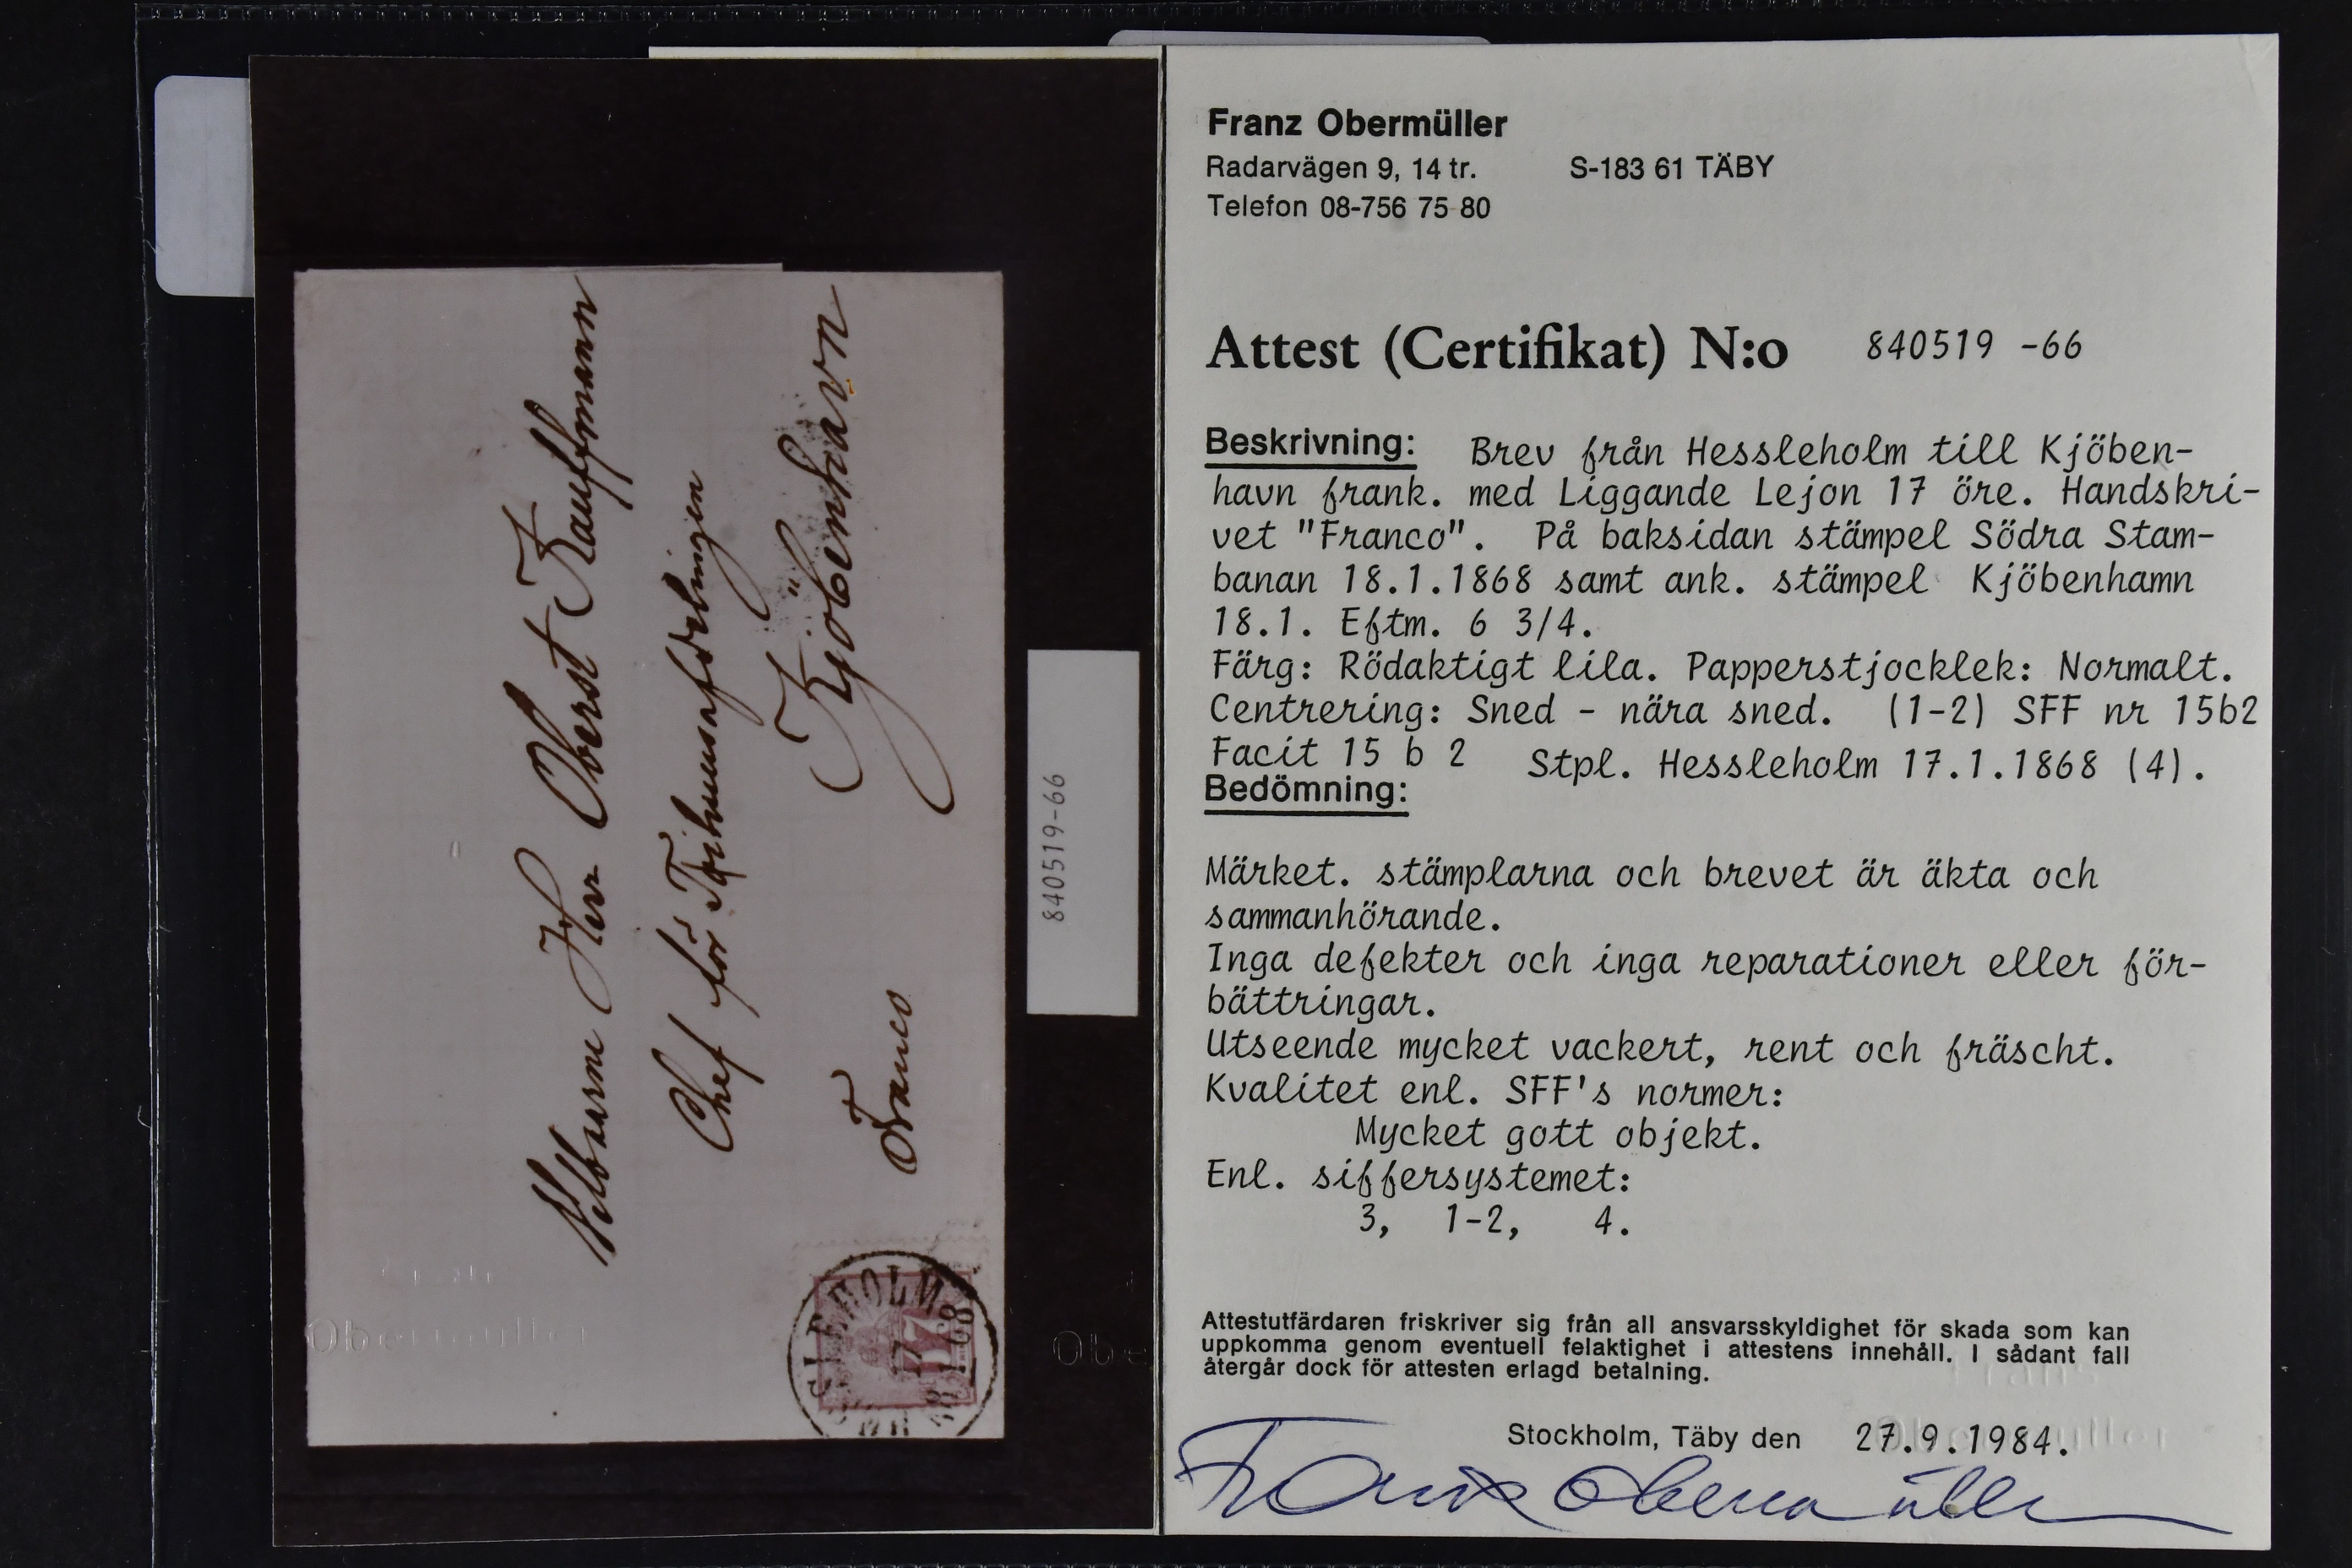 Velbaarne Herr Oberst Kauffmann
Chef för
Kjöbenhavn
Franco
SLEHOLM
17
1
1868
17
840519-66
Obermüller
Franz Obermüller
Radarvägen 9, 14 tr. S-183 61 TÄBY
Telefon 08-756 75 80
Attest (Certifikat) N:o 840519 -66
Beskrivning: Brev från Hessleholm till Kjöben-
havn frank. med Liggande Lejon 17 öre. Handskri-
vet "Franco". På baksidan stämpel Södra Stam-
banan 18.1.1868 samt ank. stämpel Kjöbenhamn
18.1. Eftm. 6 3/4.
Färg: Rödaktigt lila. Papperstjocklek: Normalt.
Centrering: Sned - nära sned. (1-2) SFF nr 15b2
Facit 15 b 2 Stpl. Hessleholm 17.1.1868 (4).
Bedömning:
Märket. stämplarna och brevet är äkta och
sammanhörande.
Inga defekter och inga reparationer eller för-
bättringar.
Utseende mycket vackert, rent och fräscht.
Kvalitet enl. SFF's normer:
Mycket gott objekt.
Enl. siffersystemet:
3, 1-2, 4.
Attestutfärdaren friskriver sig från all ansvarsskyldighet för skada som kan
uppkomma genom eventuell felaktighet i attestens innehåll. I sådant fall
återgår dock för attesten erlagd betalning.
Stockholm, Täby den 27.9.1984.
Franz Obermüller